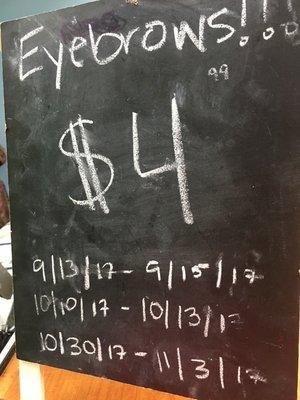 Eyebrows!!!
$4 99
9/13/17 - 9/15/17
10/10/17 - 10/13/17
10/30/17 - 11/3/17